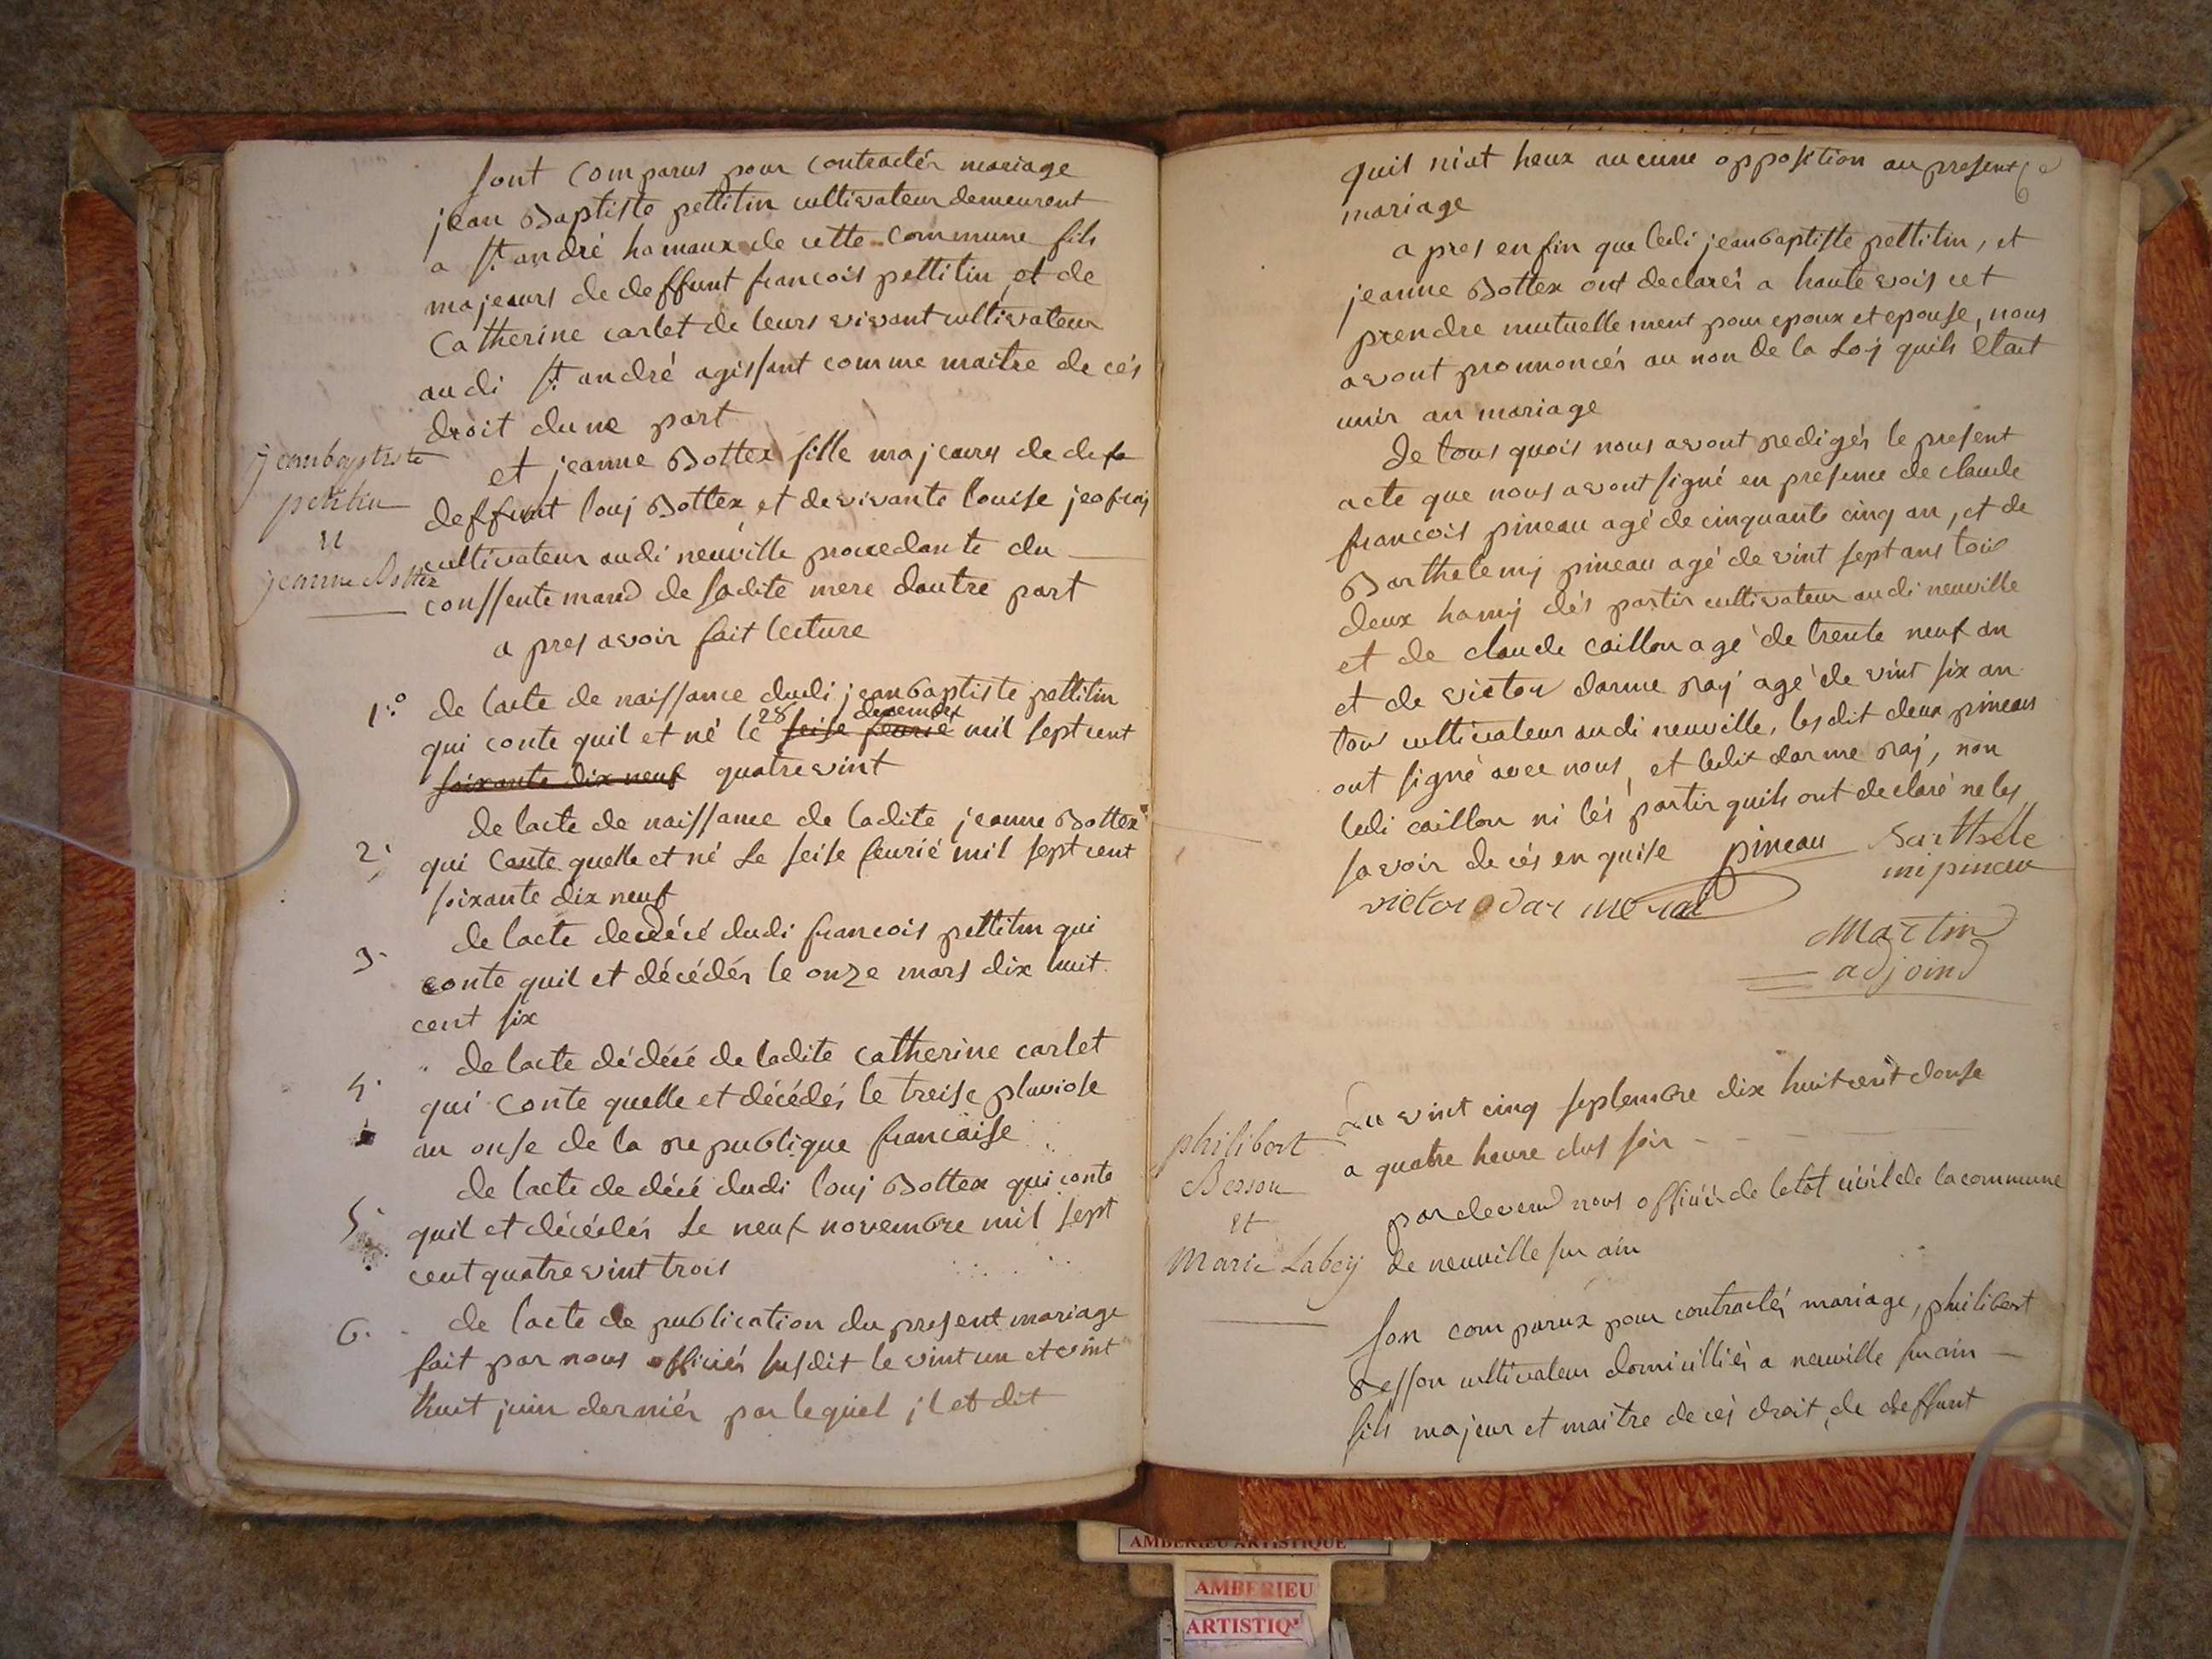 sont comparus pour contractér mariage
jean Baptiste pettitin cultivateur demeurent
a st andré hamaux de cette commune fils
majeurs de deffunt francois pettitin, et de
Catherine carlet de leurs vivant cultivateur
audi st andré agissant comme maitre de cés
droit dune part
jeanbaptiste
petitin
et
jeanne Bottex
et jeanne Bottex fille majeures de
deffunt louj Bottex et de vivante louise
cultivateur audi neuville procedante du
conssentemand de sadite mere dautre part
a pres avoir fait lecture
1.° de lacte de naissance dudi jeanbaptiste pettitin
qui conte quil et né le 28 decembre seise feurié mil sept cent
soixante dix neuf quatre vint
de lacte de naissance de ladite jeanne Bottex
2. qui conte quelle et né le seise feurié mil sept cent
soixante dix neuf
3. de lacte dedécé dudi francois pettitin qui
conte quil et décédés le onze mars dix huit
cent six
de lacte dédécé de ladite catherine carlet
4. qui conte quelle et décédés le treise pluviose
an onse de la republique francaise
de lacte de décé dudi louj Bottex qui conte
5. quil et décédés le neuf novembre mil sept
cent quatre vint trois
6. de lacte de publication du present mariage
fait par nous officiés susdit le vint un et vint
huit juin derniér par lequel jl et dit
quil niat heux aucune opposition au present
mariage
a pres en fin que ledi jeanbaptiste pettitin, et
jeanne Bottex ont declarés a haute vois cet
prendre mutuellement pour epoux et epouse, nous
avont pronnoncés au non de la Loj quils était
unir an mariage
De tous quois nous avont redigés le present
acte que nous avont signé en presence de claude
francois pineau agé de cinquante cinq an, et de
Barthelemj pineau agé de vint sept ans tous
deux hamj dés partir cultivateur audi neuville
et de claude caillon agé de trente neuf an
et de victor darme raj agé de vint six an
tous cultivateur audi neuville, lesdit deux pineau
ont signé avec nous, et ledit darme raj, non
ledi caillon ni lés partir quils ont declaré ne les
savoir de cés en quise pineau Barthele
mi pineau
victor dar
Martin
adjoind
Du vint cinq septembre dix huit cent douse
a quatre heure dus soir
philibert
Besson
et
Marie Labeÿ
pardevend nous officié de letat civil de la commune
de neuville sur ain
son comparux pour contractés mariage, philibert
Besson cultivateur domicilliés a neuville sur ain
fils majeur et maitre de cés droit, de deffunt
AMBERIEU ARTISTIQUE
AMBERIEU
ARTISTIQ